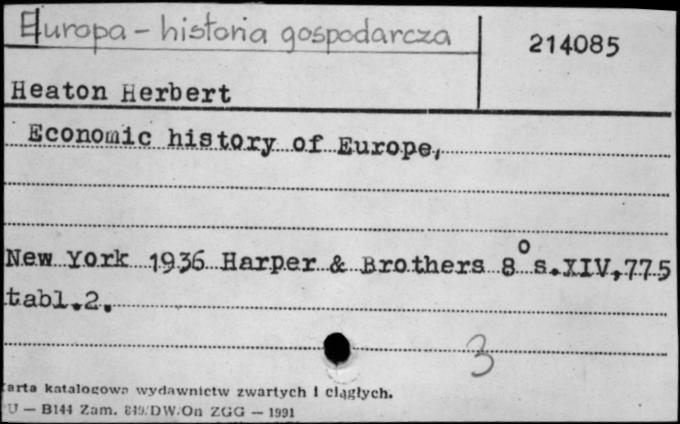 Europa - historia gospodarcza
214085
Heaton Herbert
Economic history of Europe,
New York 1936 Harper & Brothers 8° s.XIV,775
tabl.2.
3
arta katalogowa wydawnictw zwartych i ciągłych.
U — B144 Zam. 849/DW/On ZGG — 1991